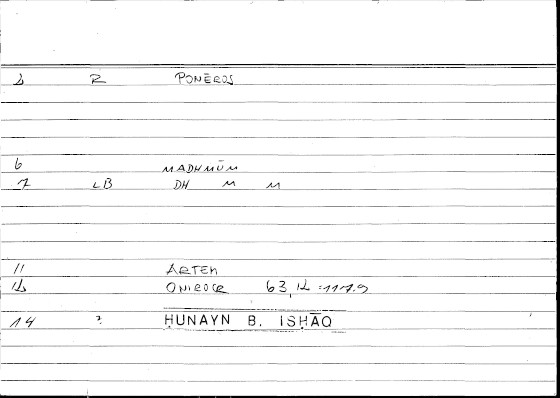 R PONĒROS
6 MADHMŪM
7 LB DH M M
11 ARTEM
ONIROCR 63,
14 ? ḤUNAYN B. ISḤĀQ